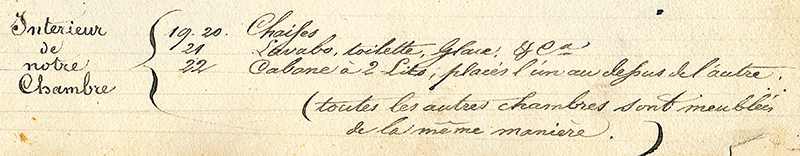 Interieur
de
notre
Chambre
19. 20. Chaises
21 Lavabo, toilette, Glace, & Ca
22 Cabane à 2 Lits, placés l'un au dessus de l'autre.
(toutes les autres chambres sont meublés
de la même manière.)